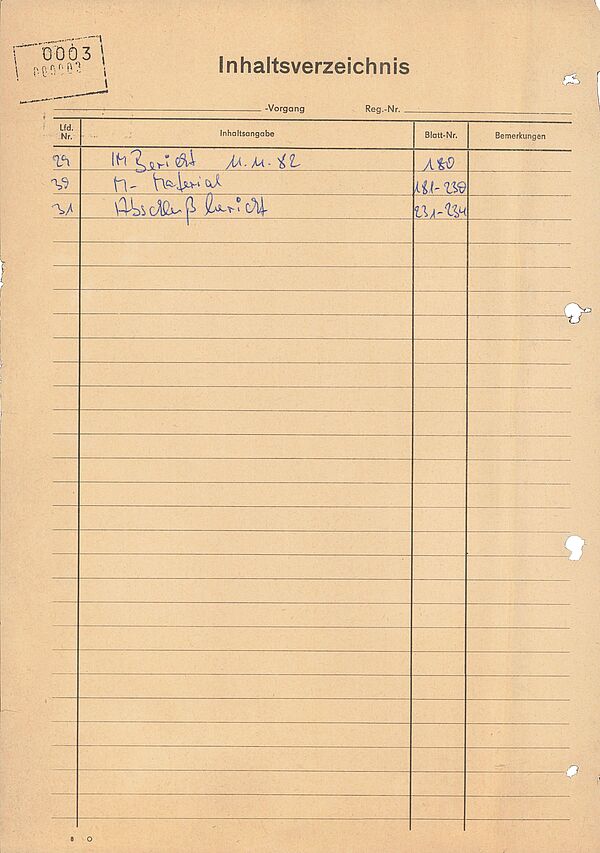 0003
000003
Inhaltsverzeichnis
-Vorgang Reg.-Nr.
Lfd. Nr. Inhaltsangabe Blatt-Nr. Bemerkungen
29 IM Bericht 11.11.82 180
30 M- Material 181-230
31 Abschlußbericht 231-234
8